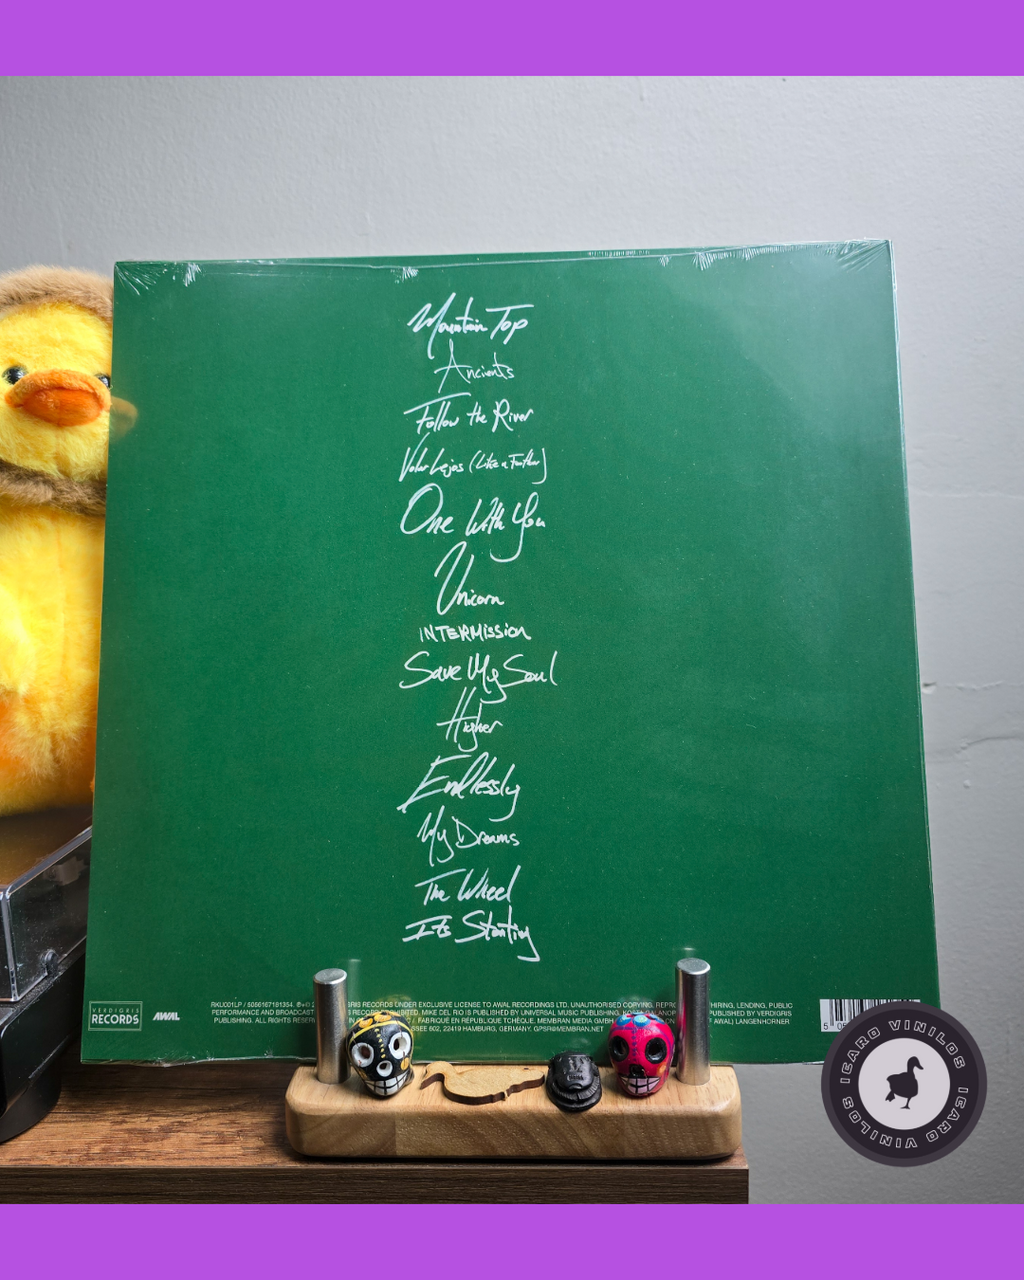 Mountain Top
Ancients
Follow the River
Volar Lejos (Like a Feather)
One With You
Unicorn
INTERMISSION
Save My Soul
Higher
Endlessly
My Dreams
The Wheel
It's Starting
VERDIGRIS
RECORDS
AWAL
RKU001LP / 5056167181354. ℗+© 2 GRIS RECORDS UNDER EXCLUSIVE LICENSE TO AWAL RECORDINGS LTD. UNAUTHORISED COPYING, REPRO HIRING, LENDING, PUBLIC
PERFORMANCE AND BROADCAST PROHIBITED. MIKE DEL RIO IS PUBLISHED BY UNIVERSAL MUSIC PUBLISHING, PUBLISHED BY VERDIGRIS
PUBLISHING. ALL RIGHTS RESER / FABRIQUÉ EN RÉPUBLIQUE TCHÈQUE. MEMBRAN MEDIA GMBH AWAL) LANGENHORNER
SSEE 602, 22419 HAMBURG, GERMANY. GPSR@MEMBRAN.NET
ICARO VINILOS ICARO VINILOS